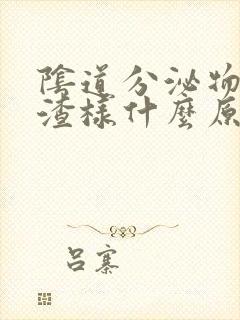 陰道分泌物
渣樣什麼原
呂寨